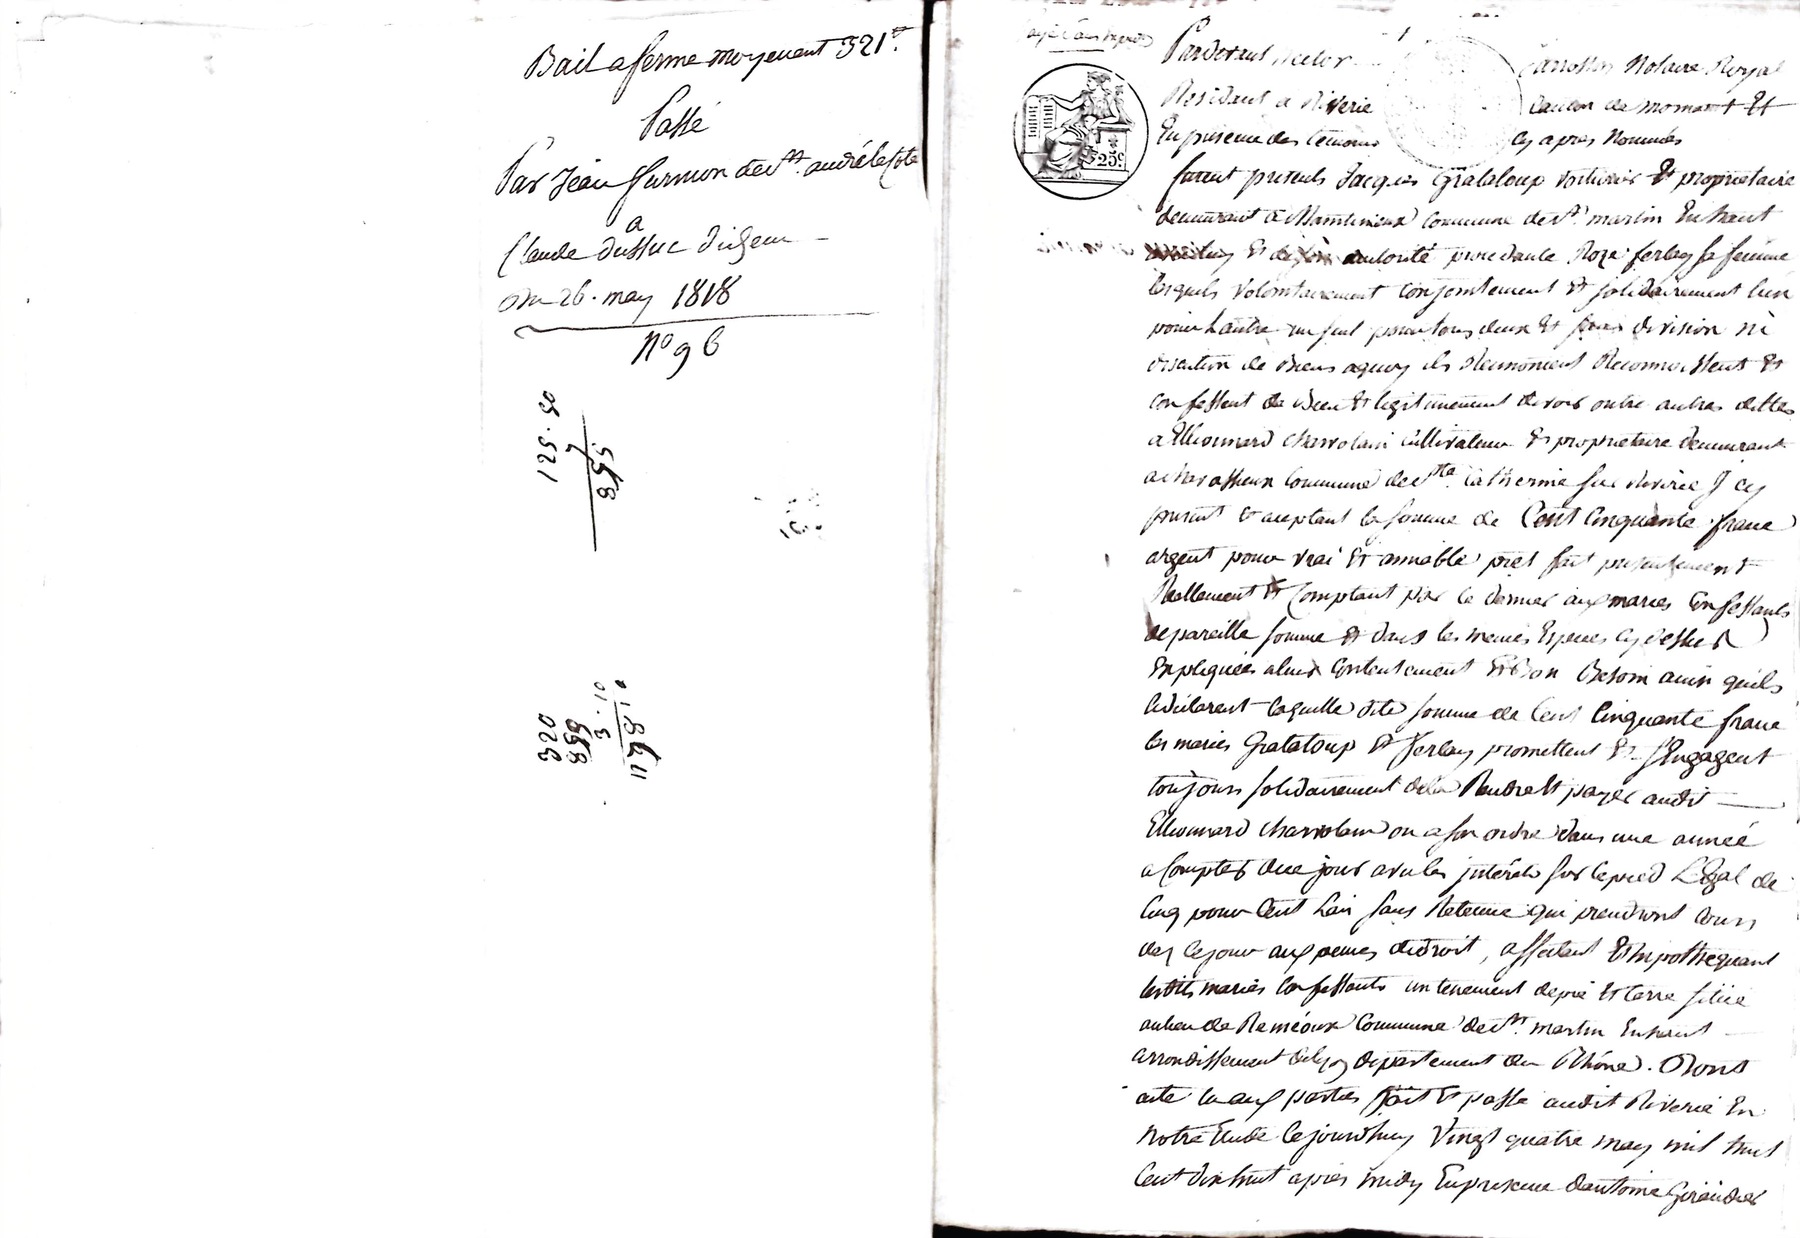 Bail a ferme moyenent 321 tt.
Passé
Par Jean furnion de st. andré la Cote
a
Claude dussuc
du 26. may 1818
N° 96
125.50
320
899
3.10
Pardevant hector Notaire Royal
Résidant a Riverie canton de mornant Et
En presence des temoins cy apres Nommés
25c
furent presents Jacques Grataloup voiturier Et propriétaire
demeurant à commune de st. martin En haut
Et de son autorité procedante Roze ferlay sa femme
lesquels volontairement conjointement Et solidairement l'un
pour l'autre un seul pour tous deux Et sans division ni
discution de Biens aquoy ils Renoncent Reconnoissent Et
confessent de Bien Et legitimement devoir outre autres dettes
a charvolain cultivateur Et proprietaire demeurant
a commune de ste. Catherine sur Riverie Jcy
present Et aceptant la somme de Cent Cinquante franc
argent pour vrai Et amiable prêt fait presentement
Reellement Et Comptant par ce dernier aux mariés Confessants
de pareille somme Et dans les memes Especes cy dessus
Expliquées a leur contentement Et Bon Besoin ainsi qu'ils
le déclarent laquelle dite somme de Cent Cinquante franc
les mariés Grataloup Et ferlay promettent Et S'Engagent
toujours solidairement de la Rendre Et payer audit
charvolain ou a son ordre dans une année
a Compter de ce jour avec les intérêts sur le pied LEgal de
Cinq pour Cent l'an sans Retenue qui prendront cours
dez ce jour aux peines de droit, affectant Et hypothequant
lesdits mariés Confessants un tenement de pré Et terre situé
au lieu de Reméoux Commune de st. martin En haut
arrondissement de Lyon departement du Rhône. Dont
acte lu aux parties fait Et passé audit Riverie En
Notre Etude Cejourdhuy Vingt quatre may mil huit
Cent dix huit apres midy En presence d'antoine Giraudier